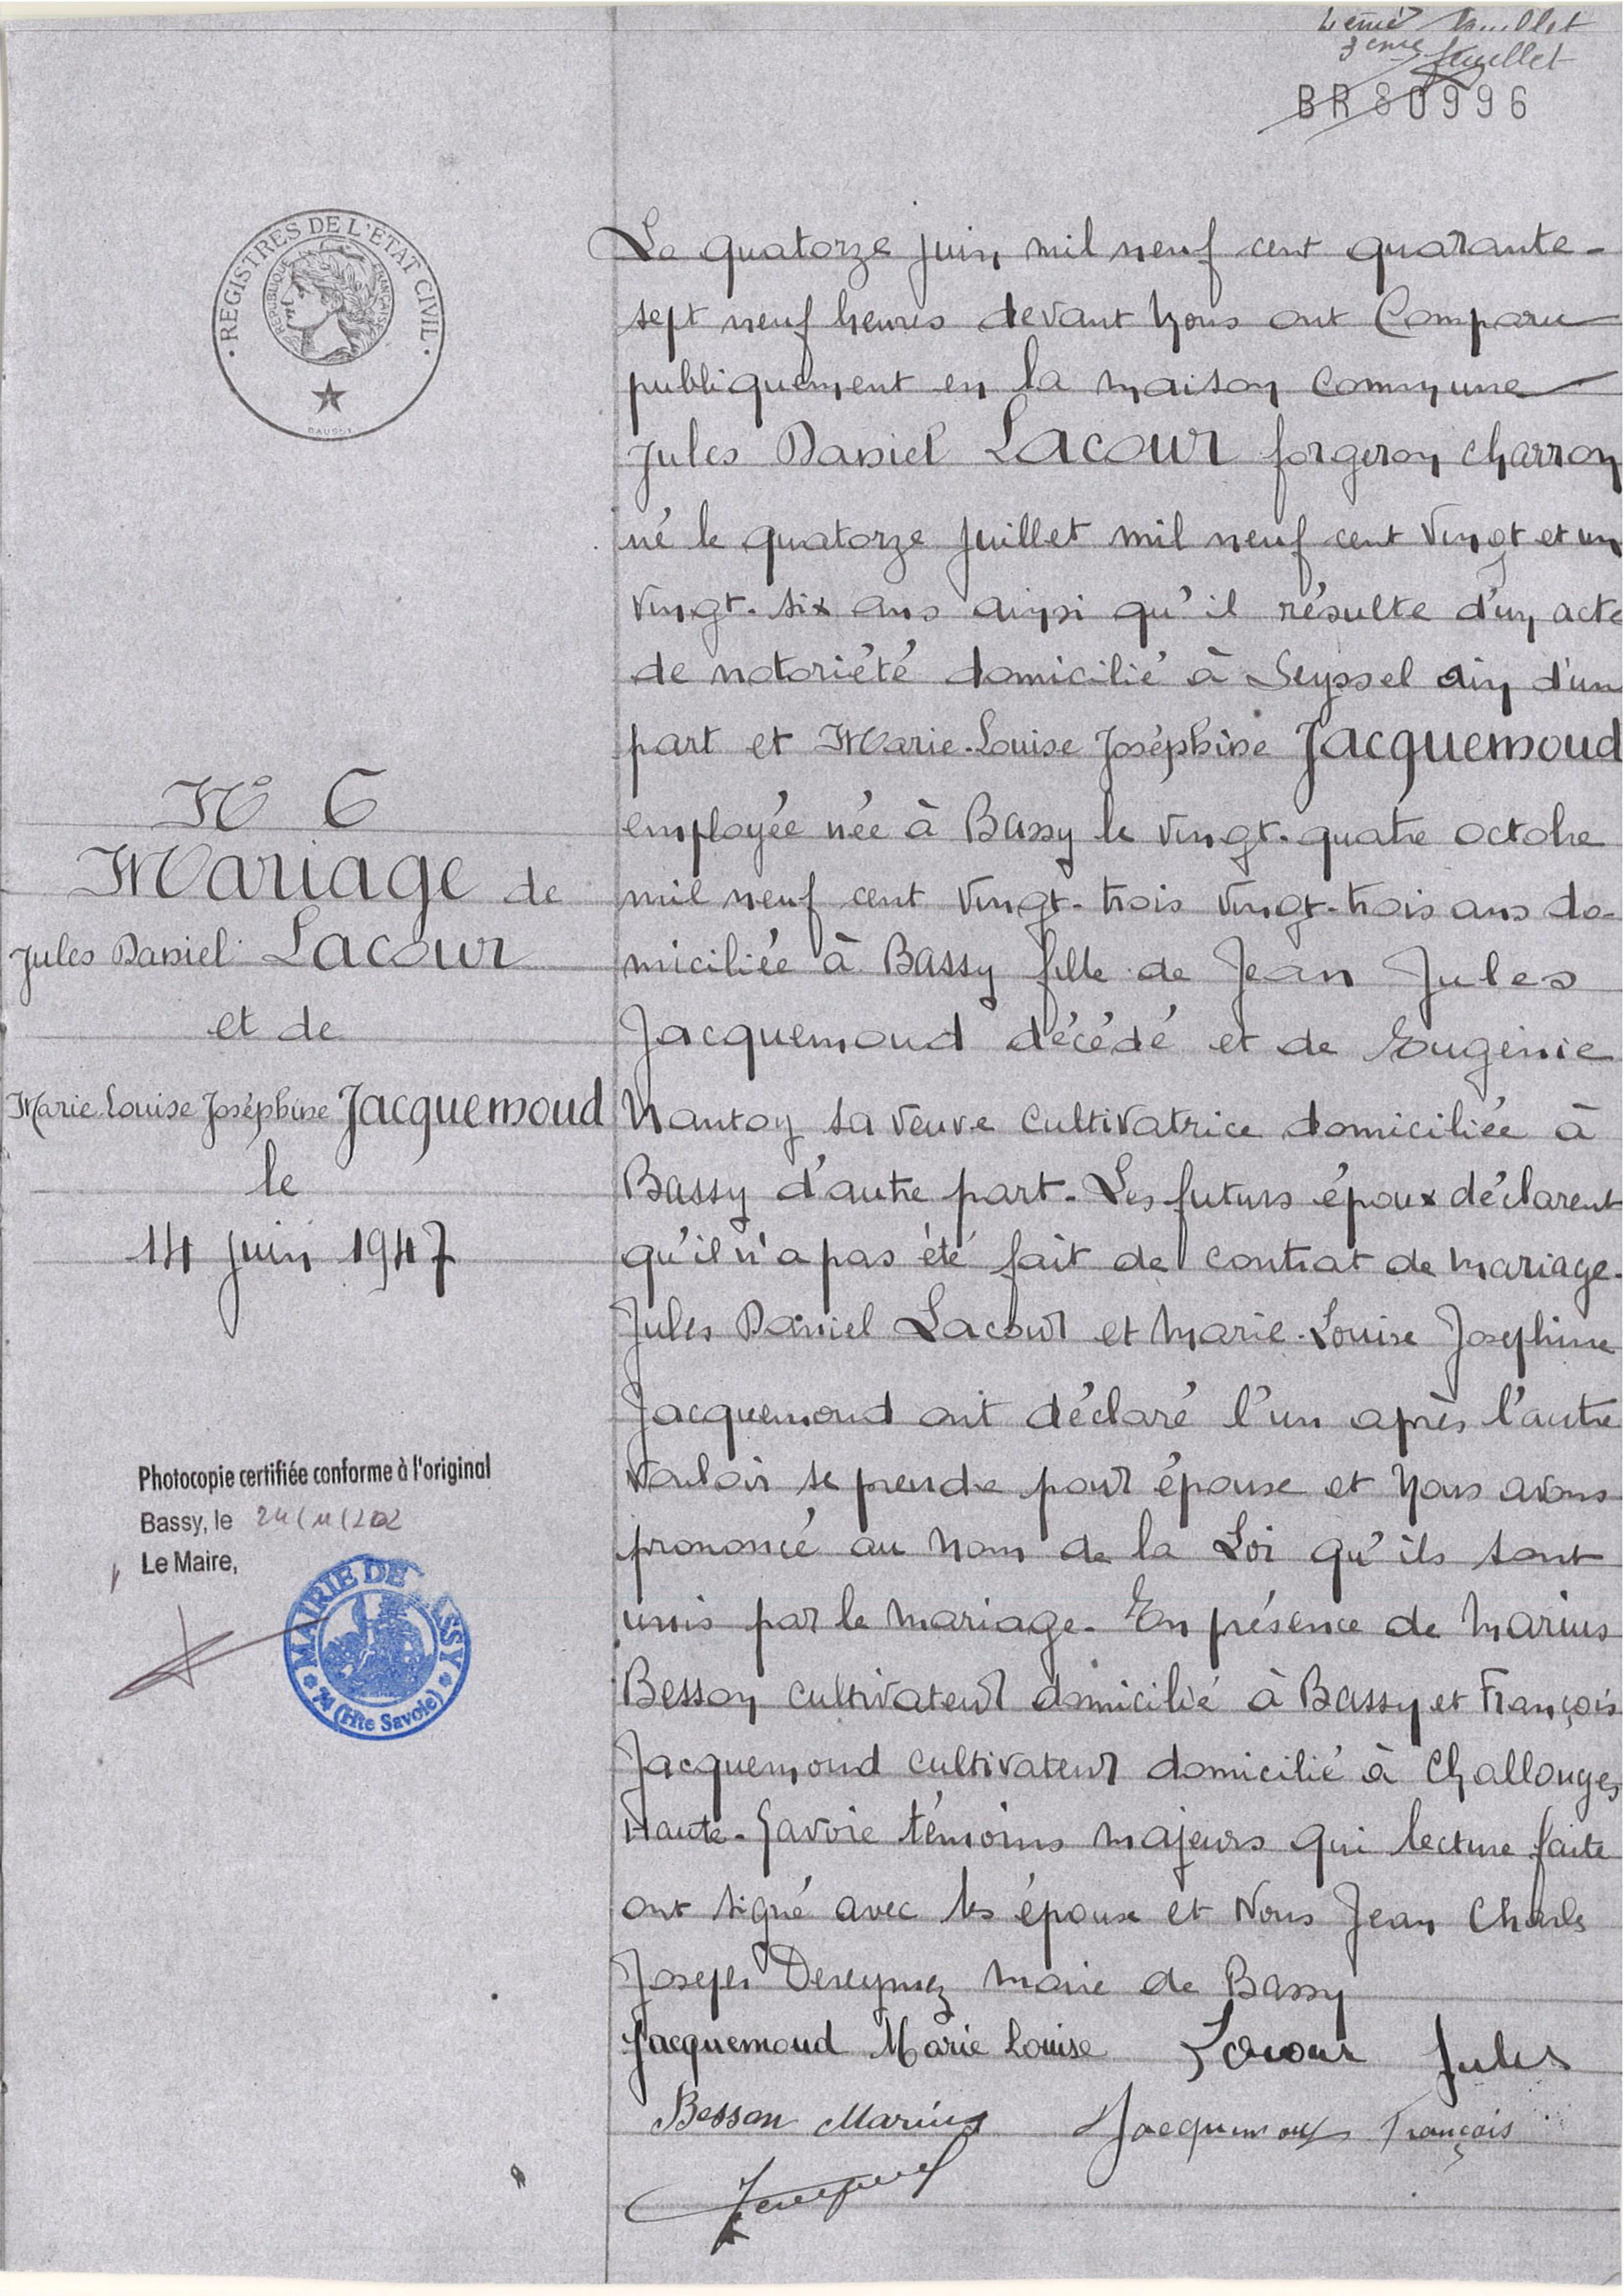 4ème
3ème feuillet
BR80996
REGISTRES DE L'ETAT CIVIL
REPUBLIQUE FRANÇAISE
Le quatorze juin mil neuf cent quarante-
sept neuf heures devant Nous ont Comparu
publiquement en la maison commune
Jules Daniel Lacour forgeron charron
né le quatorze juillet mil neuf cent vingt et un
vingt-six ans ainsi qu'il résulte d'un acte
de notoriété domicilié à Seyssel ain d'un
part et Marie-Louise Joséphine Jacquemoud
employée née à Bassy le vingt-quatre octobre
mil neuf cent vingt-trois vingt-trois ans do-
miciliée à Bassy fille de Jean Jules
Jacquemoud décédé et de Eugénie
Nanton sa veuve cultivatrice domiciliée à
Bassy d'autre part. Les futurs époux déclarent
qu'il n'a pas été fait de contrat de mariage.
Jules Daniel Lacour et Marie-Louise Josephine
Jacquemoud ont déclaré l'un après l'autre
vouloir se prendre pour épouse et Nous avons
prononcé au nom de la Loi qu'ils sont
unis par le mariage. En présence de Marius
Besson cultivateur domicilié à Bassy et François
Jacquemoud cultivateur domicilié à Challonges
Haute-Savoie témoins majeurs qui lecture faite
ont signé avec les épouse et Nous Jean Charles
Joseph Dereymez maire de Bassy
Jacquemoud Marie Louise Lacour Jules
Besson Marius Jacquemoud François
N° 6
Mariage de
Jules Daniel Lacour
et de
Marie Louise Joséphine Jacquemoud
le
14 juin 1947
Photocopie certifiée conforme à l'original
Bassy, le
Le Maire,
MAIRIE DE SSY
74 (Hte Savoie)